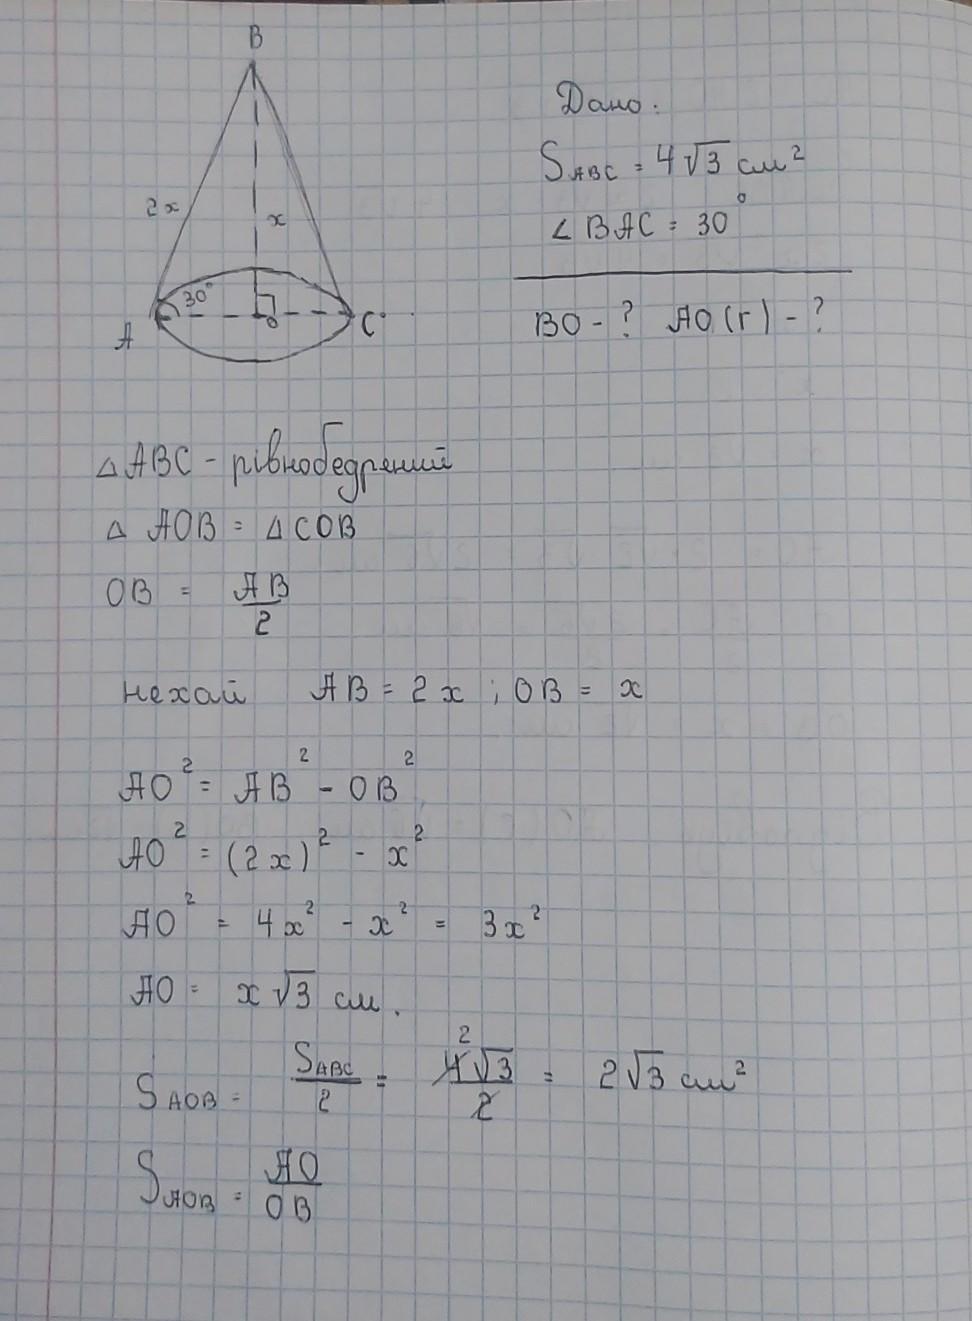 B
2x
x
30°
A
O
C
Дано:
S ABC = 4√3 см²
∠BAC = 30°
BO - ? AO(r) - ?
△ABC - рівнобедрений
△ AOB = △COB
OB = AB/2
нехай AB = 2x ; OB = x
AO² = AB² - OB²
AO² = (2x)² - x²
AO² = 4x² - x² = 3x²
AO = x√3 см.
S AOB = S ABC/2 = 4√3/2 2 = 2√3 см²
S AOB = AO/OB